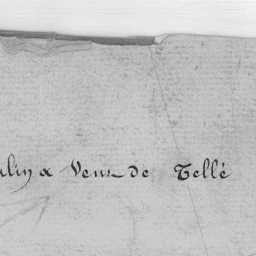 ulin & Veuve de Tellé